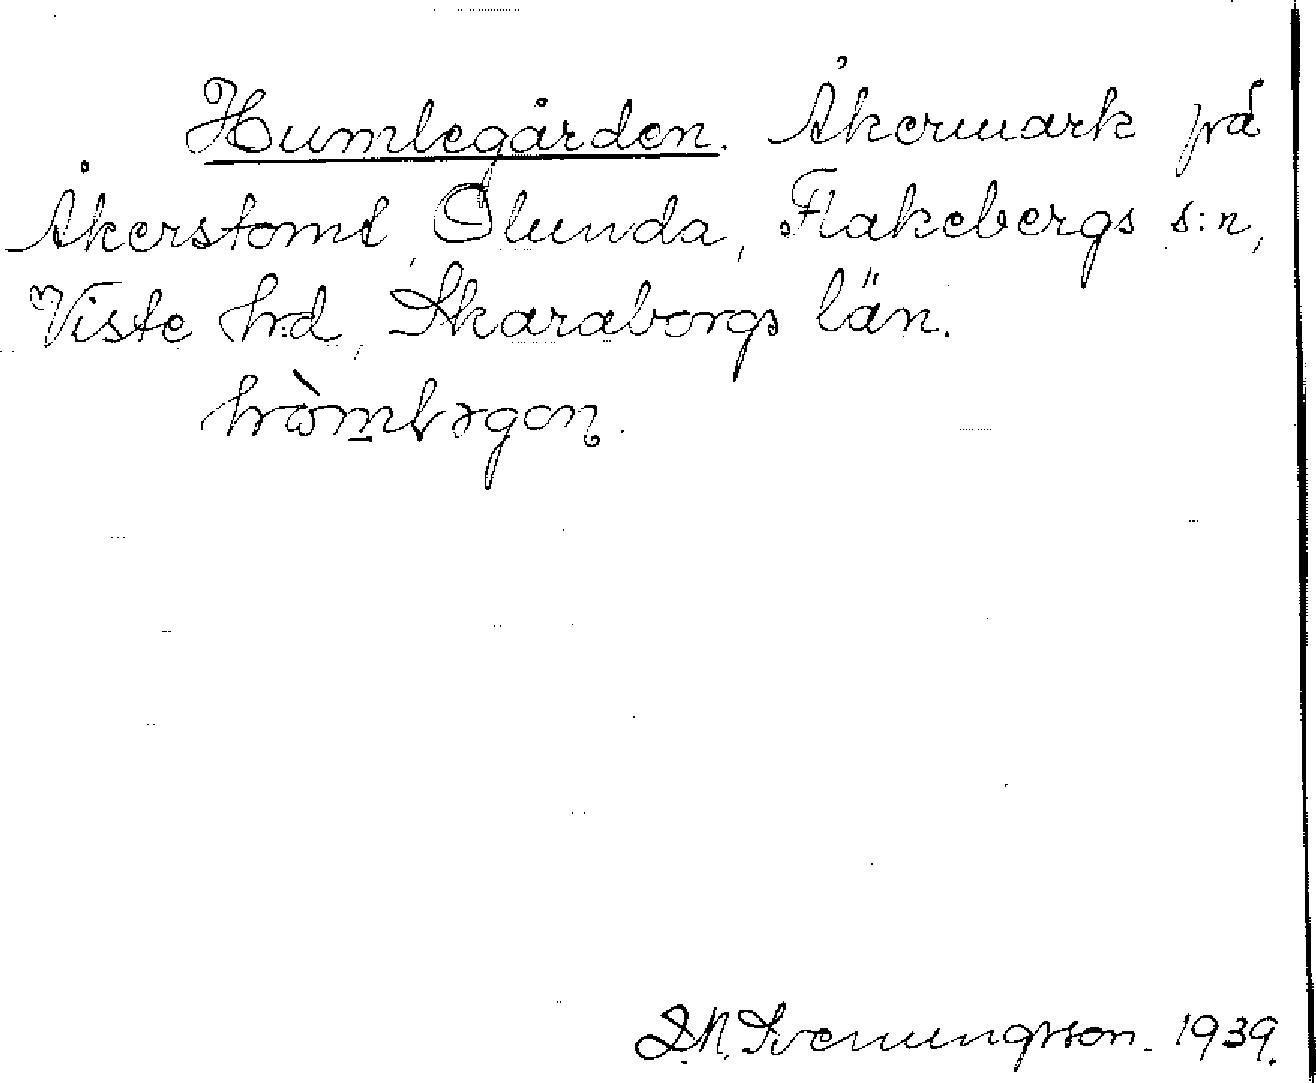 Humlegården. Åkermark på
Åkerstomt, Olunda, Flakebergs s:n,
Viste h:d, Skaraborgs län.
S.N. Svenungsson. 1939.